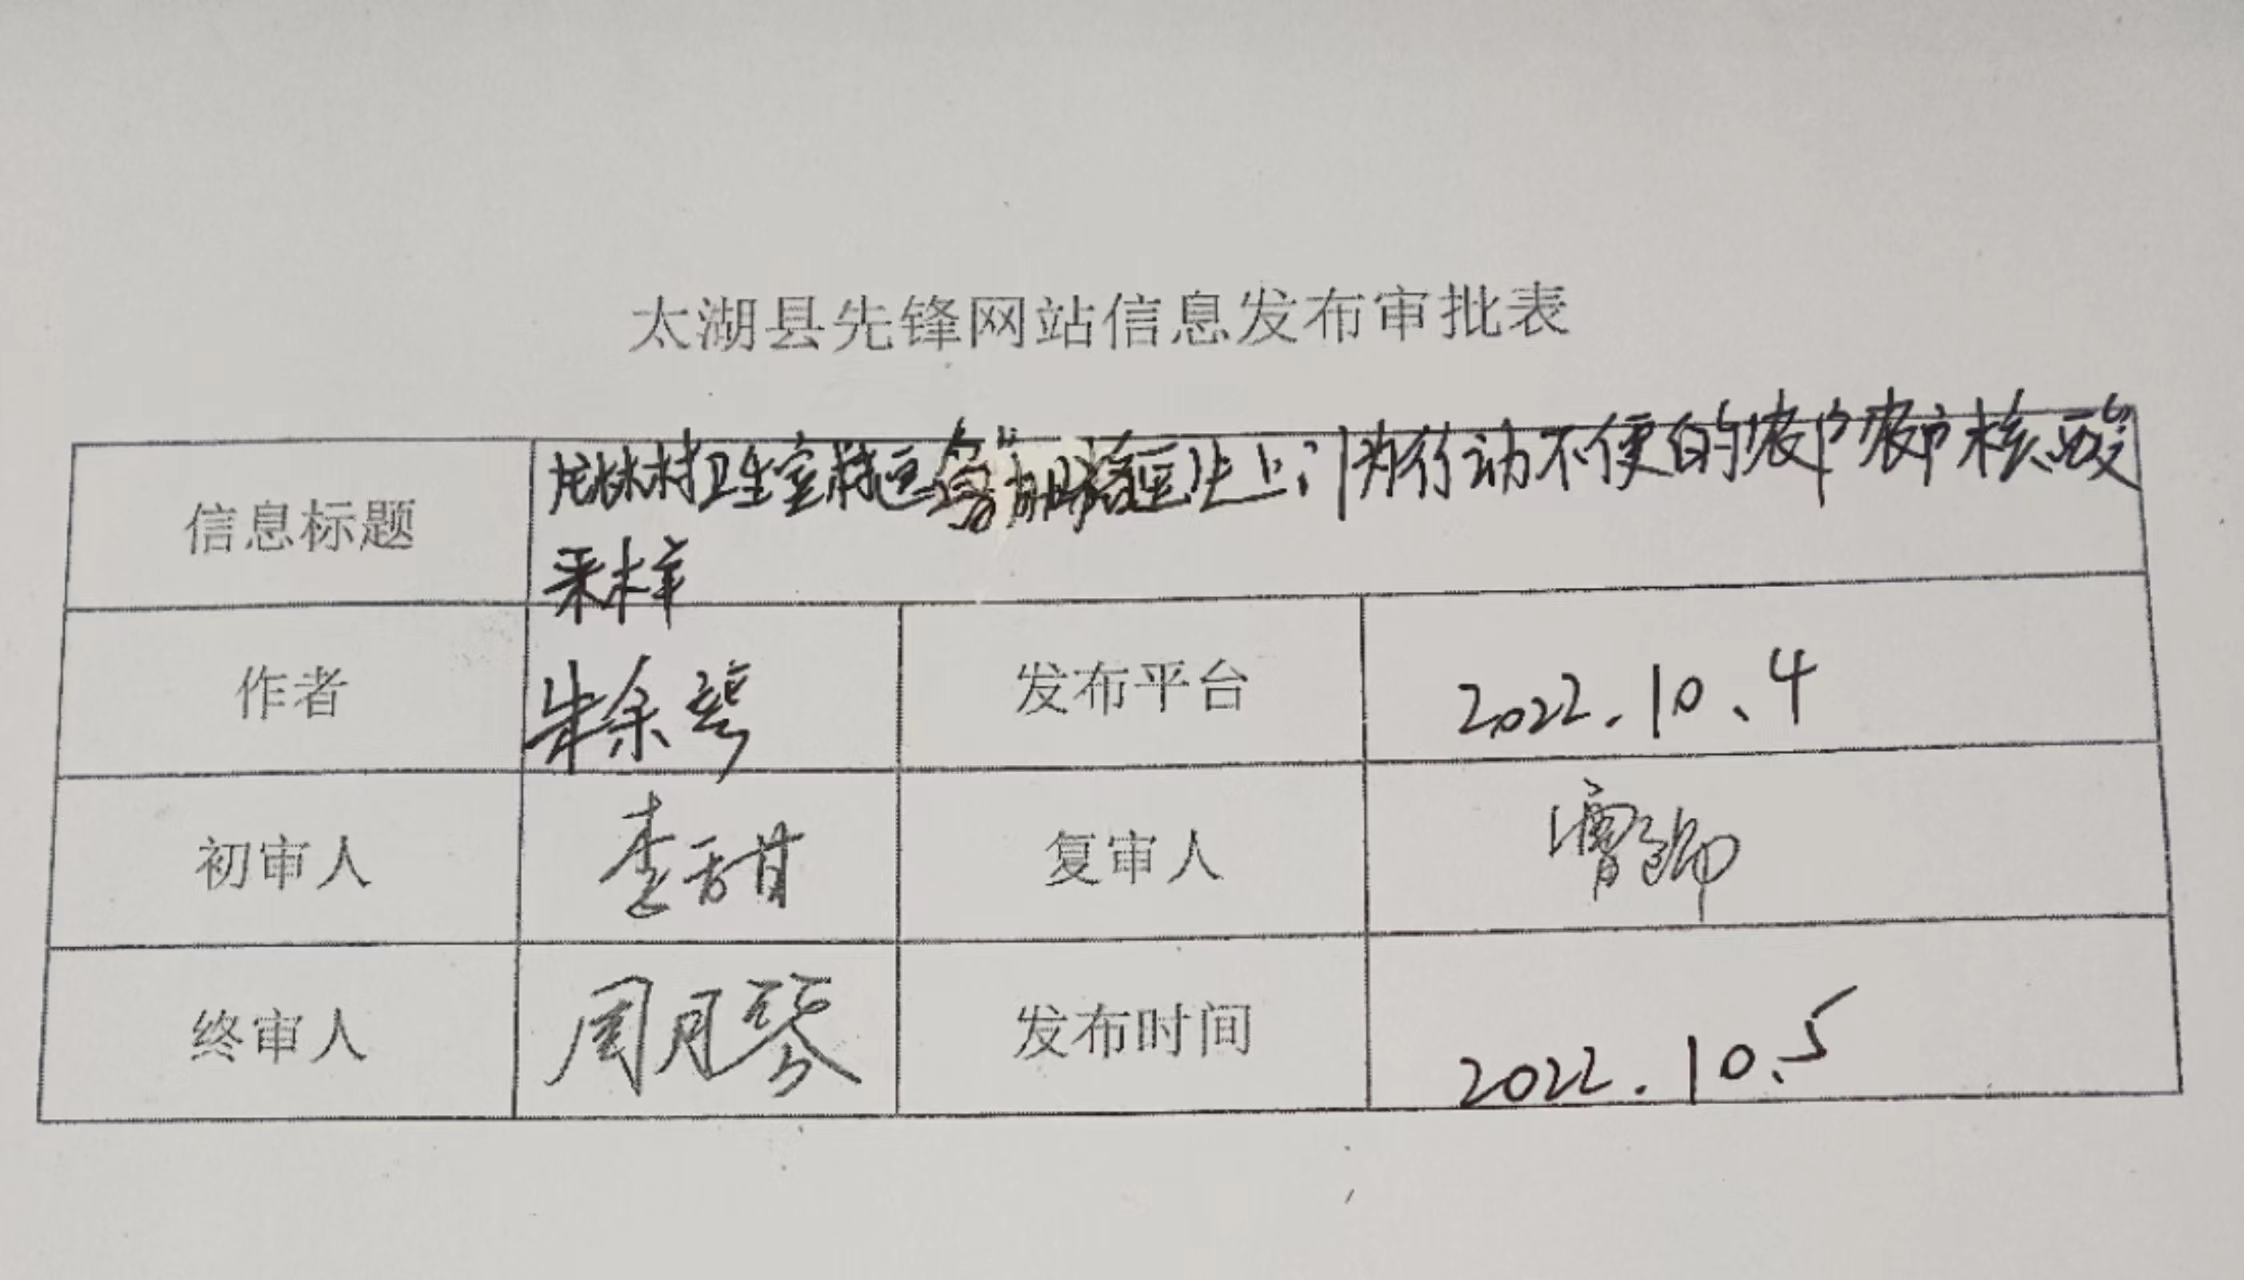 太湖县先锋网站信息发布审批表
信息标题
龙林村卫生室村医上门为行动不便的农户农户核酸
采样
作者 朱余琴 发布平台 2022.10.4
初审人 李甜 复审人 曹
终审人 周月琴 发布时间 2022.10.5